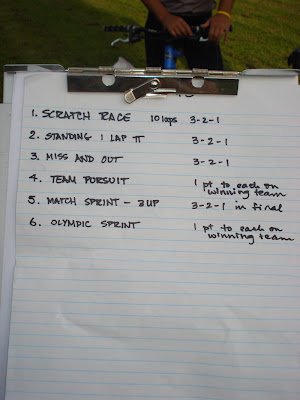 1. SCRATCH RACE 10 laps 3-2-1
2. STANDING 1 LAP TT 3-2-1
3. MISS AND OUT 3-2-1
4. TEAM PURSUIT 1 pt to each on
winning team
5. MATCH SPRINT - 3UP 3-2-1 in final
6. OLYMPIC SPRINT 1 pt to each on
winning team